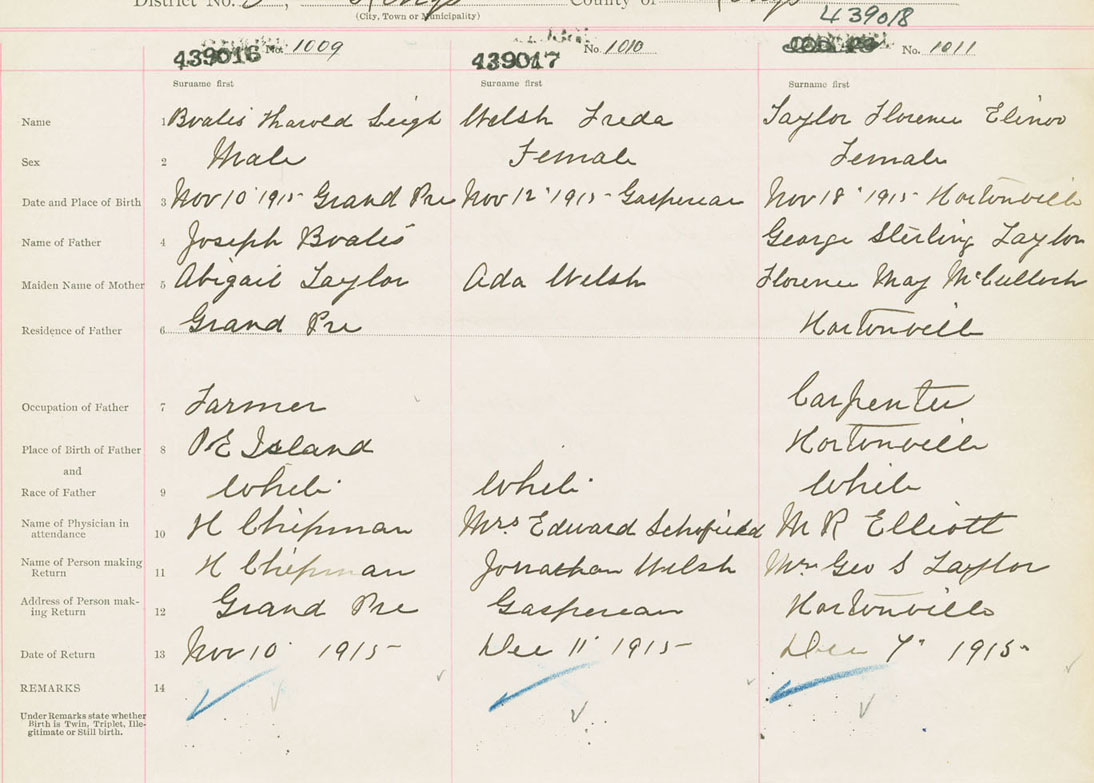 District No. , Kings County of Kings
(City, Town or Municipality)
439018
439016 No. 1009 439017 No. 1010 No. 1011
Surname first Surname first Surname first
Name 1 Boates Harold Leigh Welsh Freda Taylor Florence Elinor
Sex 2 Male Female Female
Date and Place of Birth 3 Nov 10 1915 Grand Pre Nov 12 1915 Gaspereau Nov 18 1915 Hortonville
Name of Father 4 Joseph Boates George Sterling Taylor
Maiden Name of Mother 5 Abigail Taylor Ada Welsh Florence May McCulloch
Residence of Father 6 Grand Pre Hortonville
Occupation of Father 7 Farmer Carpenter
Place of Birth of Father 8 P E Island Hortonville
and
Race of Father 9 White White White
Name of Physician in
attendance 10 H Chipman Mrs Edward Schofield M R Elliott
Name of Person making
Return 11 H Chipman Jonathan Welsh Mrs Geo S Taylor
Address of Person mak-
ing Return 12 Grand Pre Gaspereau Hortonville
Date of Return 13 Nov 10 1915 Dec 11 1915 Dec 7 1915
REMARKS 14
Under Remarks state whether
Birth is Twin, Triplet, Ille-
gitimate or Still birth.